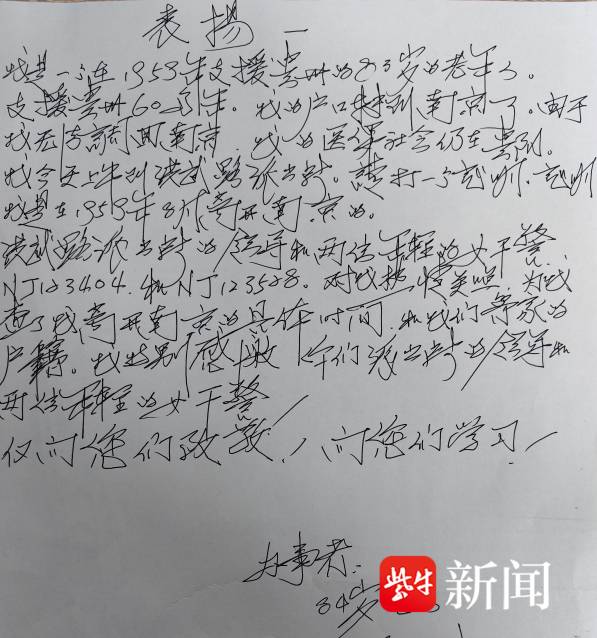 表扬一
我是一个在1959年支援贵州的83岁的老年人。
支援贵州60多年。我的户口转到南京了。由于
我无法离开南京,我的医保社会仍在贵州。
我今天上午到洪武路派出所。想打一个证明,证明
我是在1959年8月离开南京的。
洪武路派出所的领导和两位年轻的女干警、
NJ123404.和NJ123528.对我热情关照,为我
查了我离开南京的具体时间,和我们原来的
户籍。我特别感激你们派出所的领导和
两位年轻的女干警!
仅向您们致敬!向您们学习!
办事者:
84岁
紫牛新闻